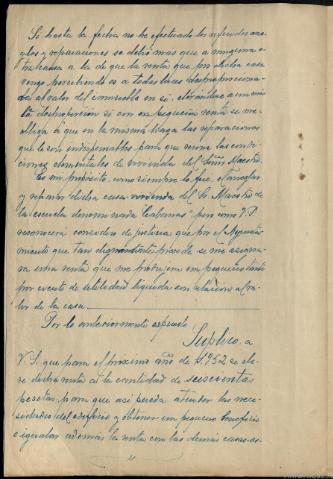 Si hasta la fecha no he efectuado los referidos arre
glos y reparaciones se debe mas que a ninguna o
tra causa a la de que la renta que por dicha casa
vengo percibiendo es a todas luces desproporciona
da al valor del inmueble en sí,
la desproporcion si con esa pequeña renta se me
obliga á que en la misma haga las reparaciones
que le son indispensables para que reuna las condi
ciones elementales de vivienda del Señor Maestro.
Es mi propósito, como siempre lo fué, el arreglar
y reparar dicha casa-vivienda del Sr. Maestro de
la escuela denominada "Cabernas" pero como V.S.
reconocerá considero de justicia que por el Ayunta
miento que tan dignamente preside se me asigna
ra una renta que me produzca un pequeño tanto
por ciento de utilidad líquida con relacion al va
lor de la casa
Por lo anteriormente expuesto
Suplico, a
V.S. que para el próximo año de 1.952 se ele
ve dicha renta a la cantidad de seiscientas
pesetas para que asi pueda atender las nece
sidades del edificio y obtener un pequeño beneficio
e igualar además la renta con las demás casas-es-